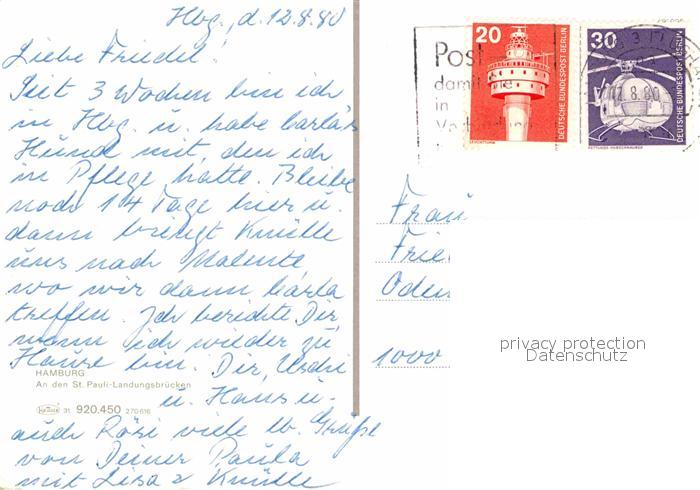 Hbg., d. 12.8.80
Liebe Friedel!
Seit 3 Wochen bin ich
in Hbg. u. habe Carla's
Hund mit, den ich
in Pflege hatte. Bleibe
noch 14 Tage hier u.
dann bringt Knülle
uns nach Malente,
wo wir dann Carla
treffen. Ich berichte Dir,
wann ich wieder zu
Hause bin. Dir, Uschi
u. Hans u.
auch Rösi viele lb. Grüße
von Deiner Paula
mit Lisa & Knülle
HAMBURG
An den St. Pauli-Landungsbrücken
KRÜGER 31 920.450 270616
Post
damit Sie
in
20
DEUTSCHE BUNDESPOST BERLIN
LEUCHTTURM
30
DEUTSCHE BUNDESPOST BERLIN
RETTUNGS-HUBSCHRAUBER
12.8.80
Frau
Frie
Oden
1000
privacy protection
Datenschutz